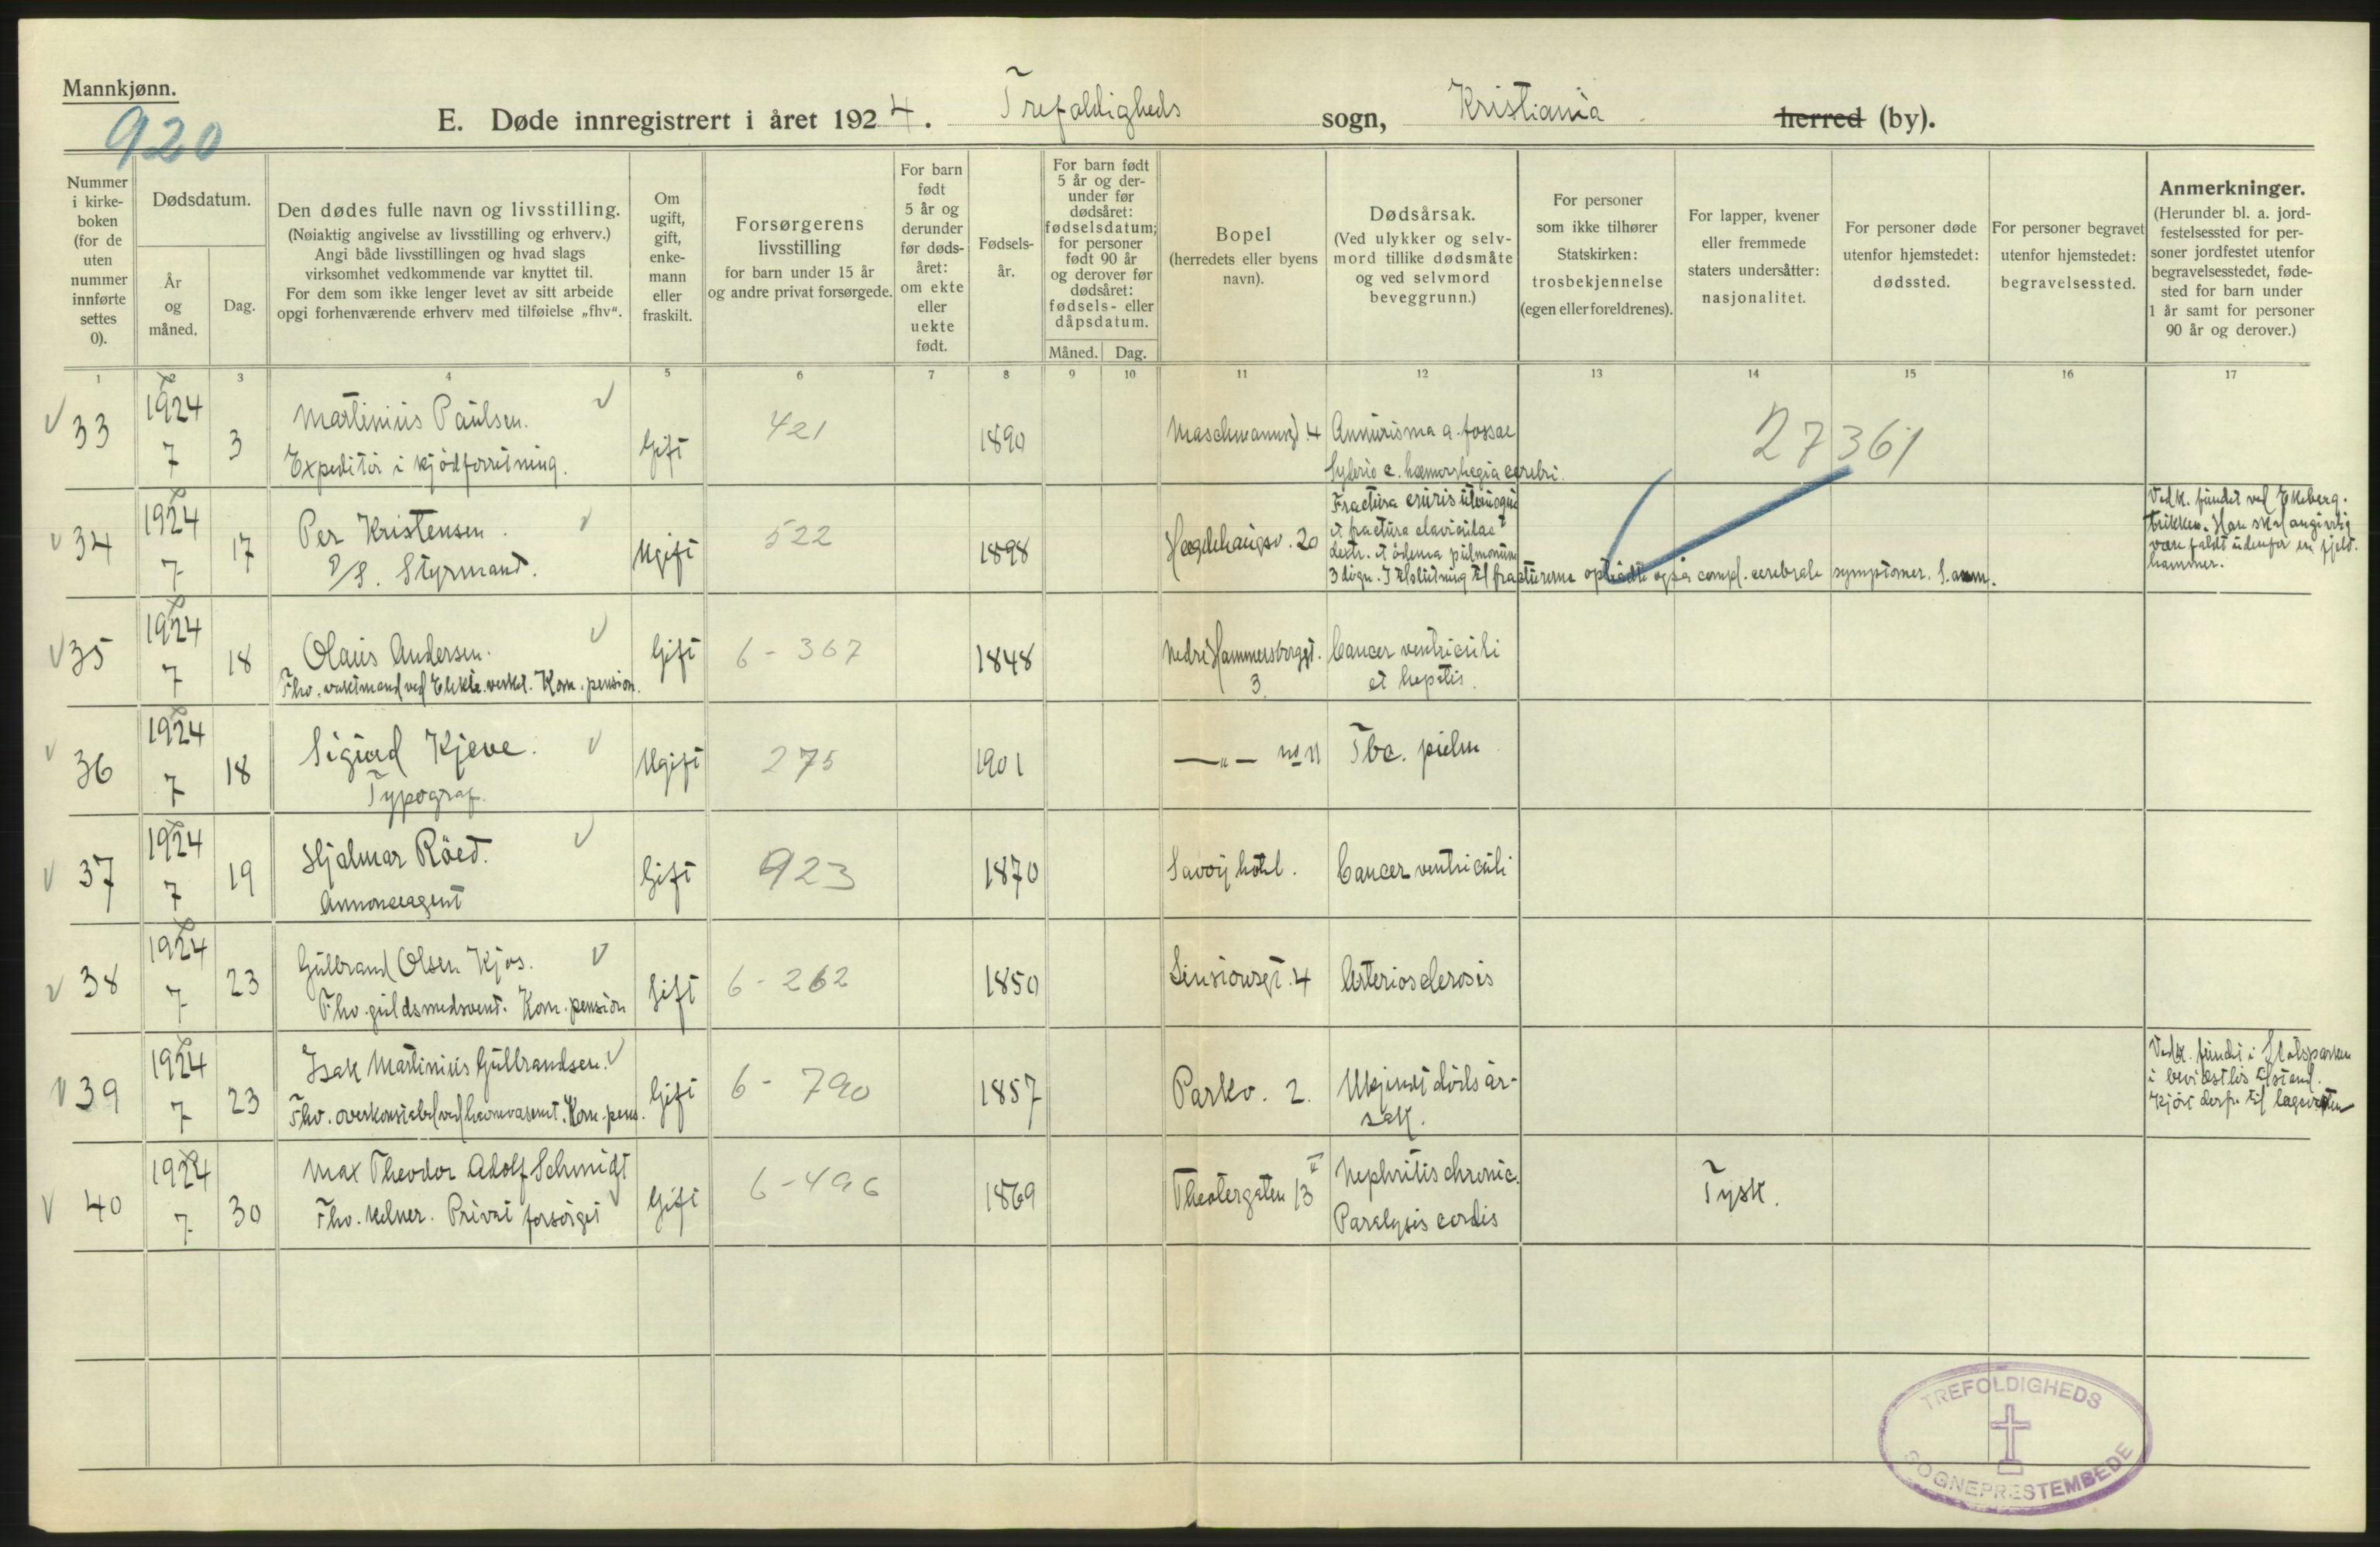 Mannkjønn.
920
E. Døde innregistrert i året 1924. Trefoldigheds sogn, Kristiania herred (by).
Nummer i kirke-boken (for de uten nummer innførte settes 0).
Dødsdatum.
År og måned.
Dag.
Den dødes fulle navn og livsstilling.
(Nøiaktig angivelse av livsstilling og erhverv.)
Angi både livsstillingen og hvad slags
virksomhet vedkommende var knyttet til.
For dem som ikke lenger levet av sitt arbeide
opgi forhenværende erhverv med tilføielse „fhv“.
Om ugift, gift, enke-mann eller fraskilt.
Forsørgerens
livsstilling
for barn under 15 år
og andre privat forsørgede.
For barn født 5 år og derunder før døds-året: om ekte eller uekte født.
Fødsels-år.
For barn født 5 år og der-under før dødsåret: fødselsdatum; for personer født 90 år og derover før dødsåret: fødsels- eller dåpsdatum.
Måned. Dag.
Bopel
(herredets eller byens
navn).
Dødsårsak.
(Ved ulykker og selv-
mord tillike dødsmåte
og ved selvmord
beveggrunn.)
For personer
som ikke tilhører
Statskirken:
trosbekjennelse
(egen eller foreldrenes).
For lapper, kvener
eller fremmede
staters undersåtter:
nasjonalitet.
For personer døde
utenfor hjemstedet:
dødssted.
For personer begravet
utenfor hjemstedet:
begravelsessted.
Anmerkninger.
(Herunder bl. a. jord-
festelsessted for per-
soner jordfestet utenfor
begravelsesstedet, føde-
sted for barn under
1 år samt for personer
90 år og derover.)
1 2 3 4 5 6 7 8 9 10 11 12 13 14 15 16 17
33 1924 7 3 Martinius Paulsen.
Expeditør i kjødforretning. Gift 421 1890 Maschmannsgt. 4 Annurisma a. fossae
Sylvrio c. hæmorrhagia cerebri.
27361
34 1924 7 17 Per Kristensen.
D/S. Styrmand. Ugift 522 1898 Hegdehaugsv. 20 Fractura cruris utriusque
et fractura claviculae
dextr. et ödema pulmonum
3 dign. I tilslutning til fracturerne optrådte også compl. cerebrale symptomer. S. anm.
Vedk. fundet ved Ekeberg-
trikken. Han skal angivelig
være faldt utenfor en fjeld-
hammer.
35 1924 7 18 Olaus Andersen.
Fhv. vaktmand ved Elektr. verket. Kom. pension. Gift 6-367 1848 Nedre Hammersborggt. 3 Cancer ventriculi
et hepatis.
36 1924 7 18 Sigurd Kjeve.
Typograf. Ugift 275 1901 —„— no 11 Tbc. pulm
37 1924 7 19 Hjalmar Röed.
Annonceagent Gift 923 1870 Savoy hotel. Cancer ventriculi
38 1924 7 23 Gulbrand Olsen Kjos.
Fhv. guldsmedsvend. Kom. pension Gift 6-262 1850 Leusionsgt. 4 Arteriosclerosis
39 1924 7 23 Isak Martinius Gulbrandsen.
Fhv. overkonstabel ved havnevæsenet. Kom. pens. Gift 6-790 1857 Parkv. 2. Ukjendt dödsår-
sak.
Vedk. fundet i Slotsparken
i bevidstlös tilstand.
Kjört derfr. til lægevakten
40 1924 7 30 Max Theodor Adolf Schmidt
Fhv. kelner. Privat forsörget Gift 6-496 1869 Theatergaten 13 II Nephritis chronic.
Paralysis cordis
Tysk.
TREFOLDIGHEDS
SOGNEPRESTEMBEDE